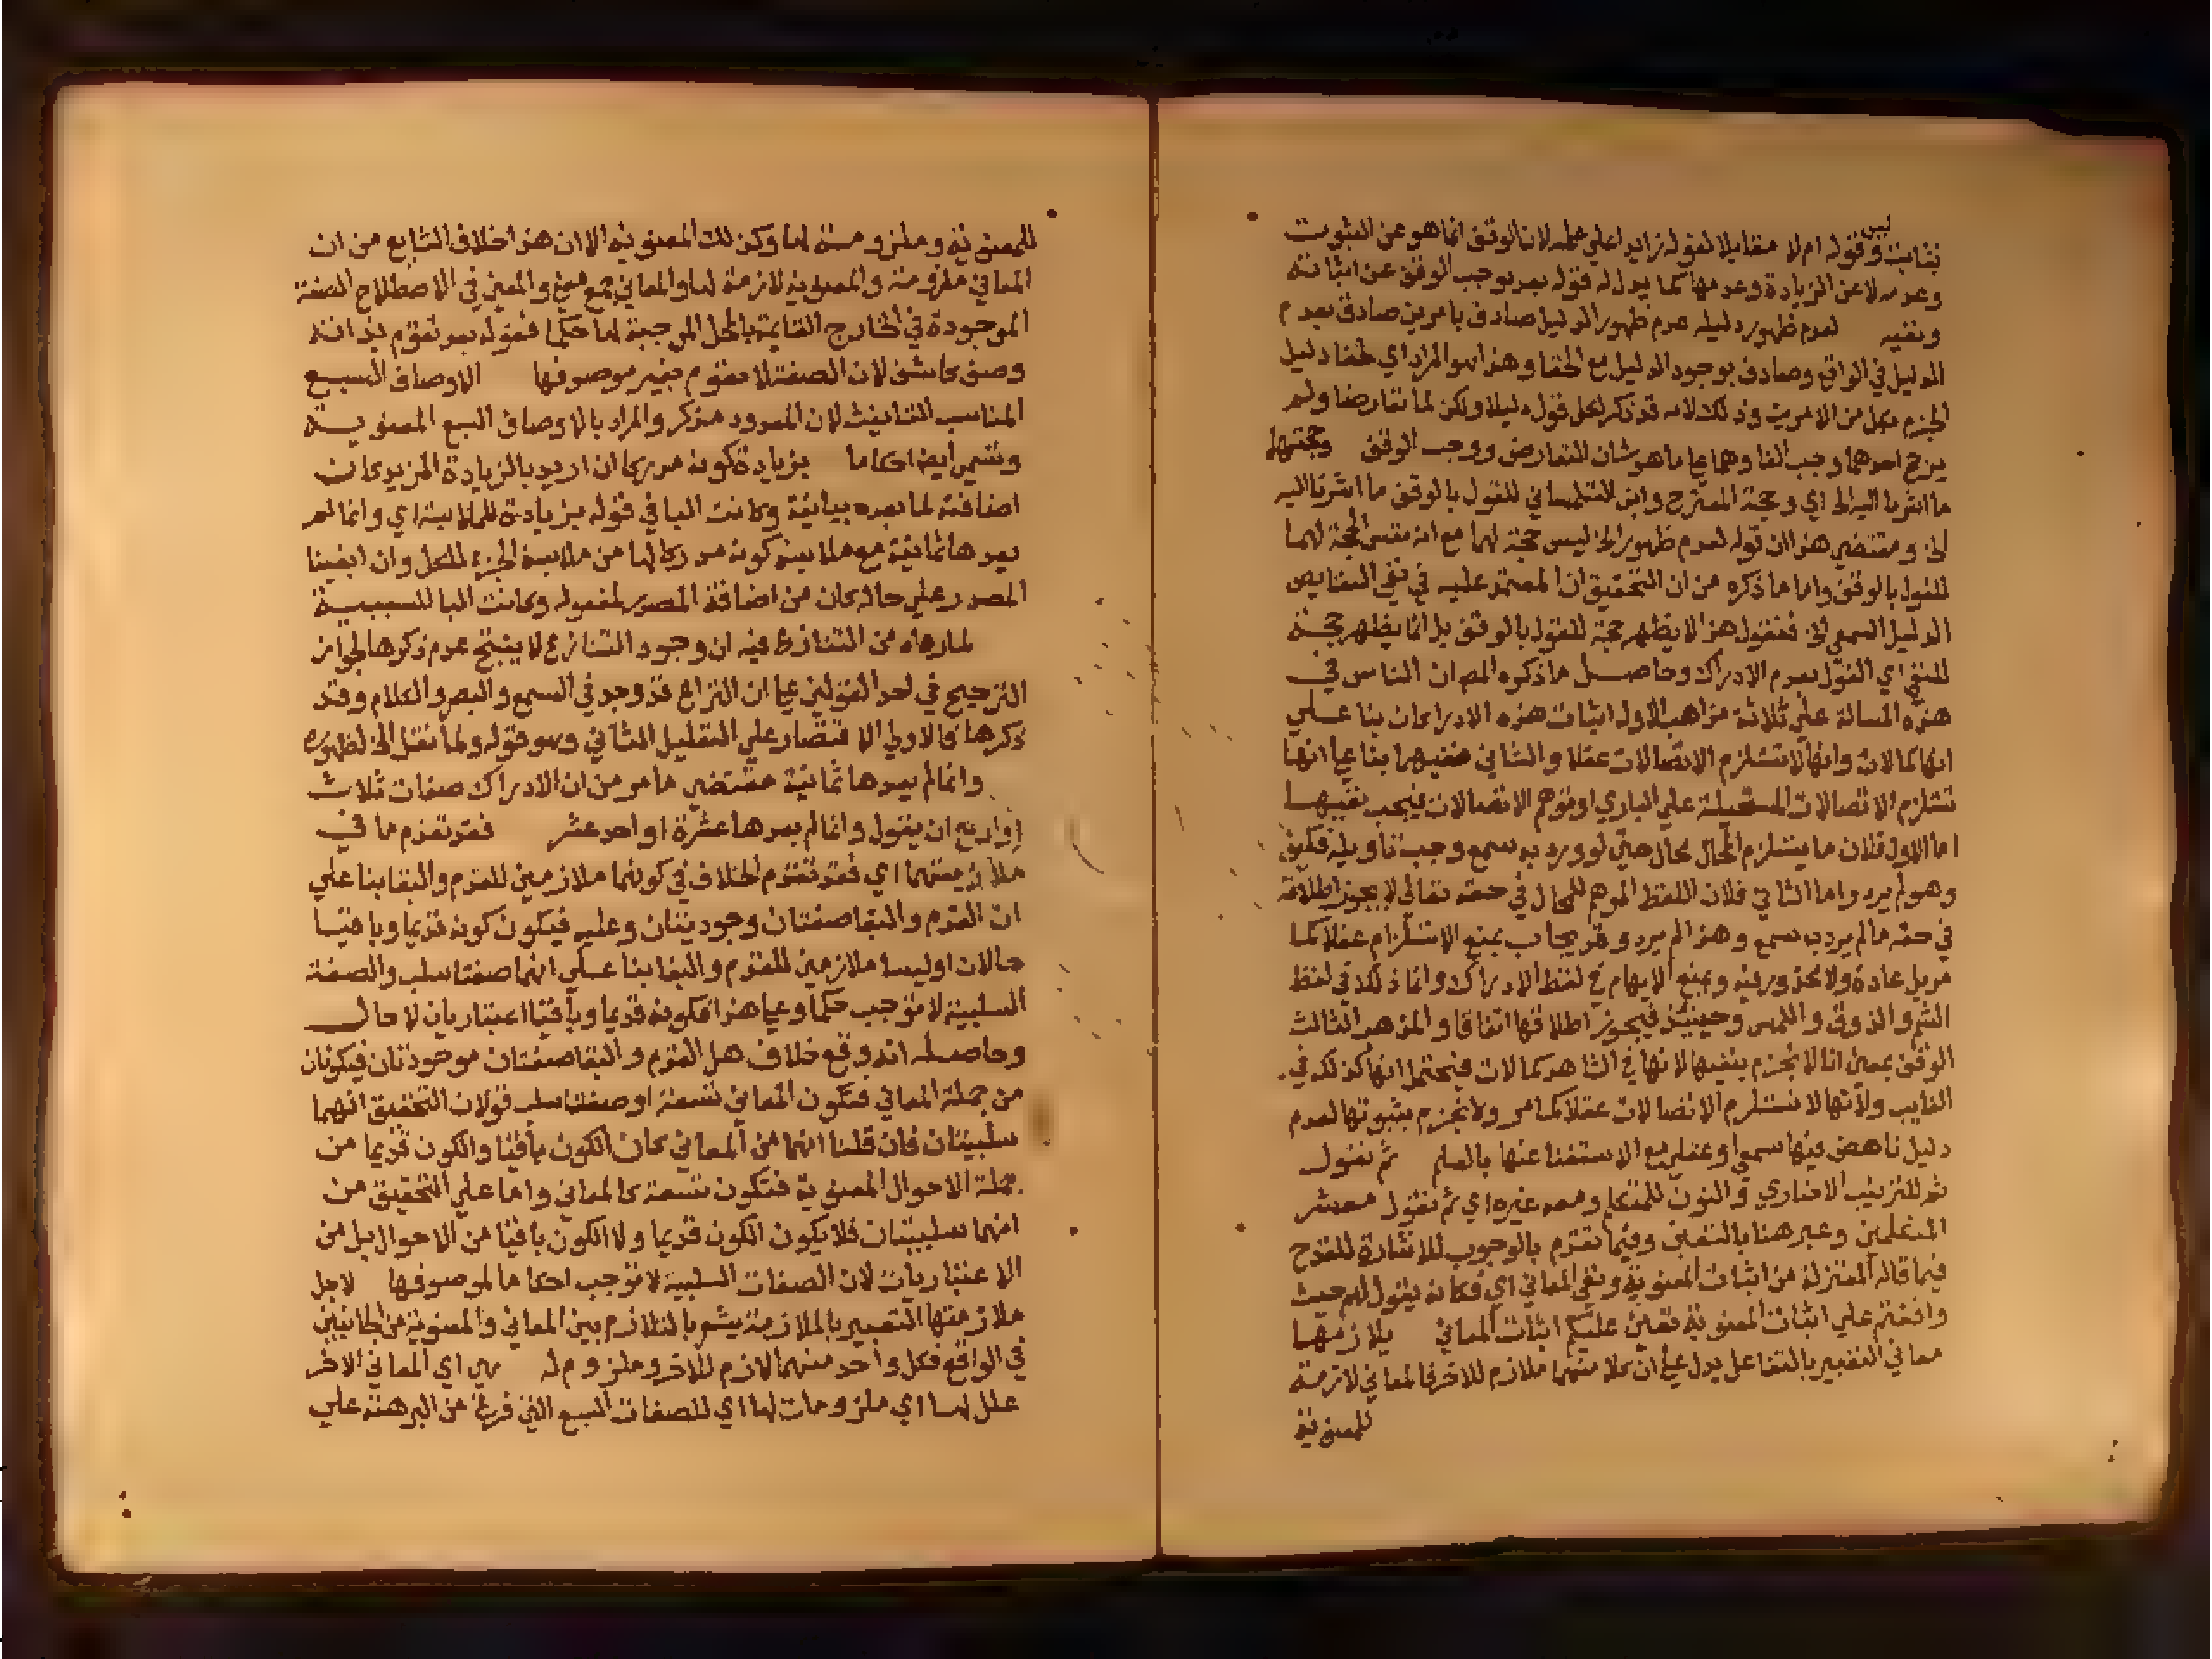 ليس
بثابت وقوله ام لا مقابلا لقوله زايد علي علمه لان الوقف انما هو عن الثبوت
وعدمه لا عن الزيادة وعدمها كما يدل له قوله بعد يوجب الوقف عن اثباته
ونفيه لعدم ظهور دليله عدم ظهور الدليل صادق بامرين صادق بعدم
الدليل في الواقع وصادق بوجود الدليل مع الخفا وهذا هو المراد اي لخفا دليل
الجزم بكل من الامرين وذلك لانه قد ذكر لكل قول دليلا ولكن لما تعارضا ولم
يرجح احدهما وجب الغاوهما علي ما هو شان التعارض ووجب الوقف وحجتهما
ما اشرنا اليه الخ اي وحجة المقترح وابن التلمساني للقول بالوقف ما اشرنا اليه
الخ ومقتضي هذا ان قوله لعدم ظهور الخ ليس حجة لهما مع انه نفس الحجة لهما
للقول بالوقف واما ما ذكره من ان التحقيق ان المعتمد عليه في نفي النقايص
الدليل السمعي الخ فنقول هذا لا يظهر حجة للقول بالوقف بل انما يظهر حجة
للنفي اي القول بعدم الادراك وحاصل ما ذكره المص ان الناس في
هذه المسالة علي ثلاثة مذاهب الاول اثبات هذه الادراكات بنا علي
انها كمالات وانها لا تستلزم الاتصالات عقلا والثاني نفيها بنا علي انها
تستلزم الاتصالات المستحيلة علي الباري او توهم الاتصالات فيجب نفيها
اما الاول فلان ما يستلزم المحال محال حتي لو ورد به سمع وجب تاويله فكيف
وهو لم يرد واما الثاني فلان اللفظ الموهم للمحال في حقه تعالي لا يجوز اطلاقه
في حقه ما لم يرد به سمع وهذا لم يرد وقد يجاب بمنع الاستلزام عقلا كما
مر بل عادة ولا محذور فيه وبمنع الايهام في لفظ الادراك وانما ذلك في لفظ
الشم والذوق واللمس وحينئذ فيجوز اطلاقها اتفاقا والمذهب الثالث
الوقف بمعني انا لا نجزم بنفيها لانها في الشاهد كمالات فيحتمل انها كذلك في
الغايب ولانها لا تستلزم الاتصالات عقلا كما مر ولا نجزم بثبوتها لعدم
دليل ناهض فيها سمعي او عقلي مع الاستغنا عنها بالعلم ثم نقول
ثم للترتيب الاخباري والنون للمتكلم ومعه غيره اي ثم نقول معشر
المتكلمين وعبر هنا بالتعين وفيما تقدم بالوجوب للاشارة للقدح
فيما قاله المعتزلة من اثبات المعنوية ونفي المعاني اي فكانه يقول لهم حيث
وافقتم علي اثبات المعنوية تعين عليكم اثبات المعاني يلازمها
معاني التعبير بالتفاعل يدل علي ان كلا منهما ملازم للاخر فالمعاني لازمة
للمعنوية
للمعنوية وملزومة لها وكذلك المعنوية الا ان هذا خلاف الشايع من ان
المعاني ملزومة والمعنوية لازمة لها والمعاني جمع معني والمعني في الاصطلاح الصفة
الموجودة في الخارج القايمة بالمحل الموجبة لها حكما فقوله بعد تقوم بذاته
وصف كاشف لان الصفة لا تقوم بغير موصوفها الاوصاف السبع
المناسب التانيث لان المعدود مذكر والمراد بالاوصاف السبع المعنوية
وتسمي ايضا احكاما بزيادة كونه مدركا ان اريد بالزيادة المزيد كانت
اضافته لما بعده بيانية وكانت البا في قوله بزيادة للملابسة اي وانما لم
يعدها ثمانية مع ملابسة كونه مدركا لها من ملابسة الجزء للكل وان ابقينا
المصدر علي حاله كان من اضافة المصدر لمفعوله وكانت البا للسببية
لما رهاه من التنازع فيه ان وجود التنازع لا ينتج عدم ذكرها لجواز
الترجيح في احد القولين علي ان النزاع قد وجد في السمع والبصر والكلام وقد
ذكرها فالاولي الاقتصار علي التعليل الثاني وهو قوله ولما نقل الخ لظهوره
وانما لم يعدها ثمانية مقتضي ما مر من ان الادراك صفات ثلاث
او اربع ان يقول وانما لم يعدها عشرة او احد عشر فقد تقدم ما في
ملازمتهما اي فقد تقدم الخلاف في كونهما ملازمين للقدم والبقا بنا علي
ان القدم والبقا صفتان وجوديتان وعليه فيكون كونه قديما وباقيا
حالان اوليسا ملازمين للقدم والبقا بنا علي انهما صفتا سلب والصفة
السلبية لا توجب حكما وعلي هذا فكونه قديما وباقيا اعتباريان لا حال
وحاصله انه وقع خلاف هل القدم والبقا صفتان موجودتان فيكونان
من جملة المعاني فتكون المعاني تسعة او صفتا سلب قولان التحقيق انهما
سلبيتان فان قلنا انهما من المعاني كان الكون باقيا والكون قديما من
جملة الاحوال المعنوية فتكون تسعة كالمعاني واما علي التحقيق من
انهما سلبيتان فلا يكون الكون قديما ولا الكون باقيا من الاحوال بل من
الاعتباريات لان الصفات السلبية لا توجب احكاما لموصوفها لاجل
ملازمتها التعبير بالملازمة يشعر بالتلازم بين المعاني والمعنوية من الجانبين
في الواقع فكل واحد منهما لازم للاخر وملزوم له هي اي المعاني الاخر
علل لها اي ملزومات لها اي للصفات السبع التي فرغ من البرهنة علي